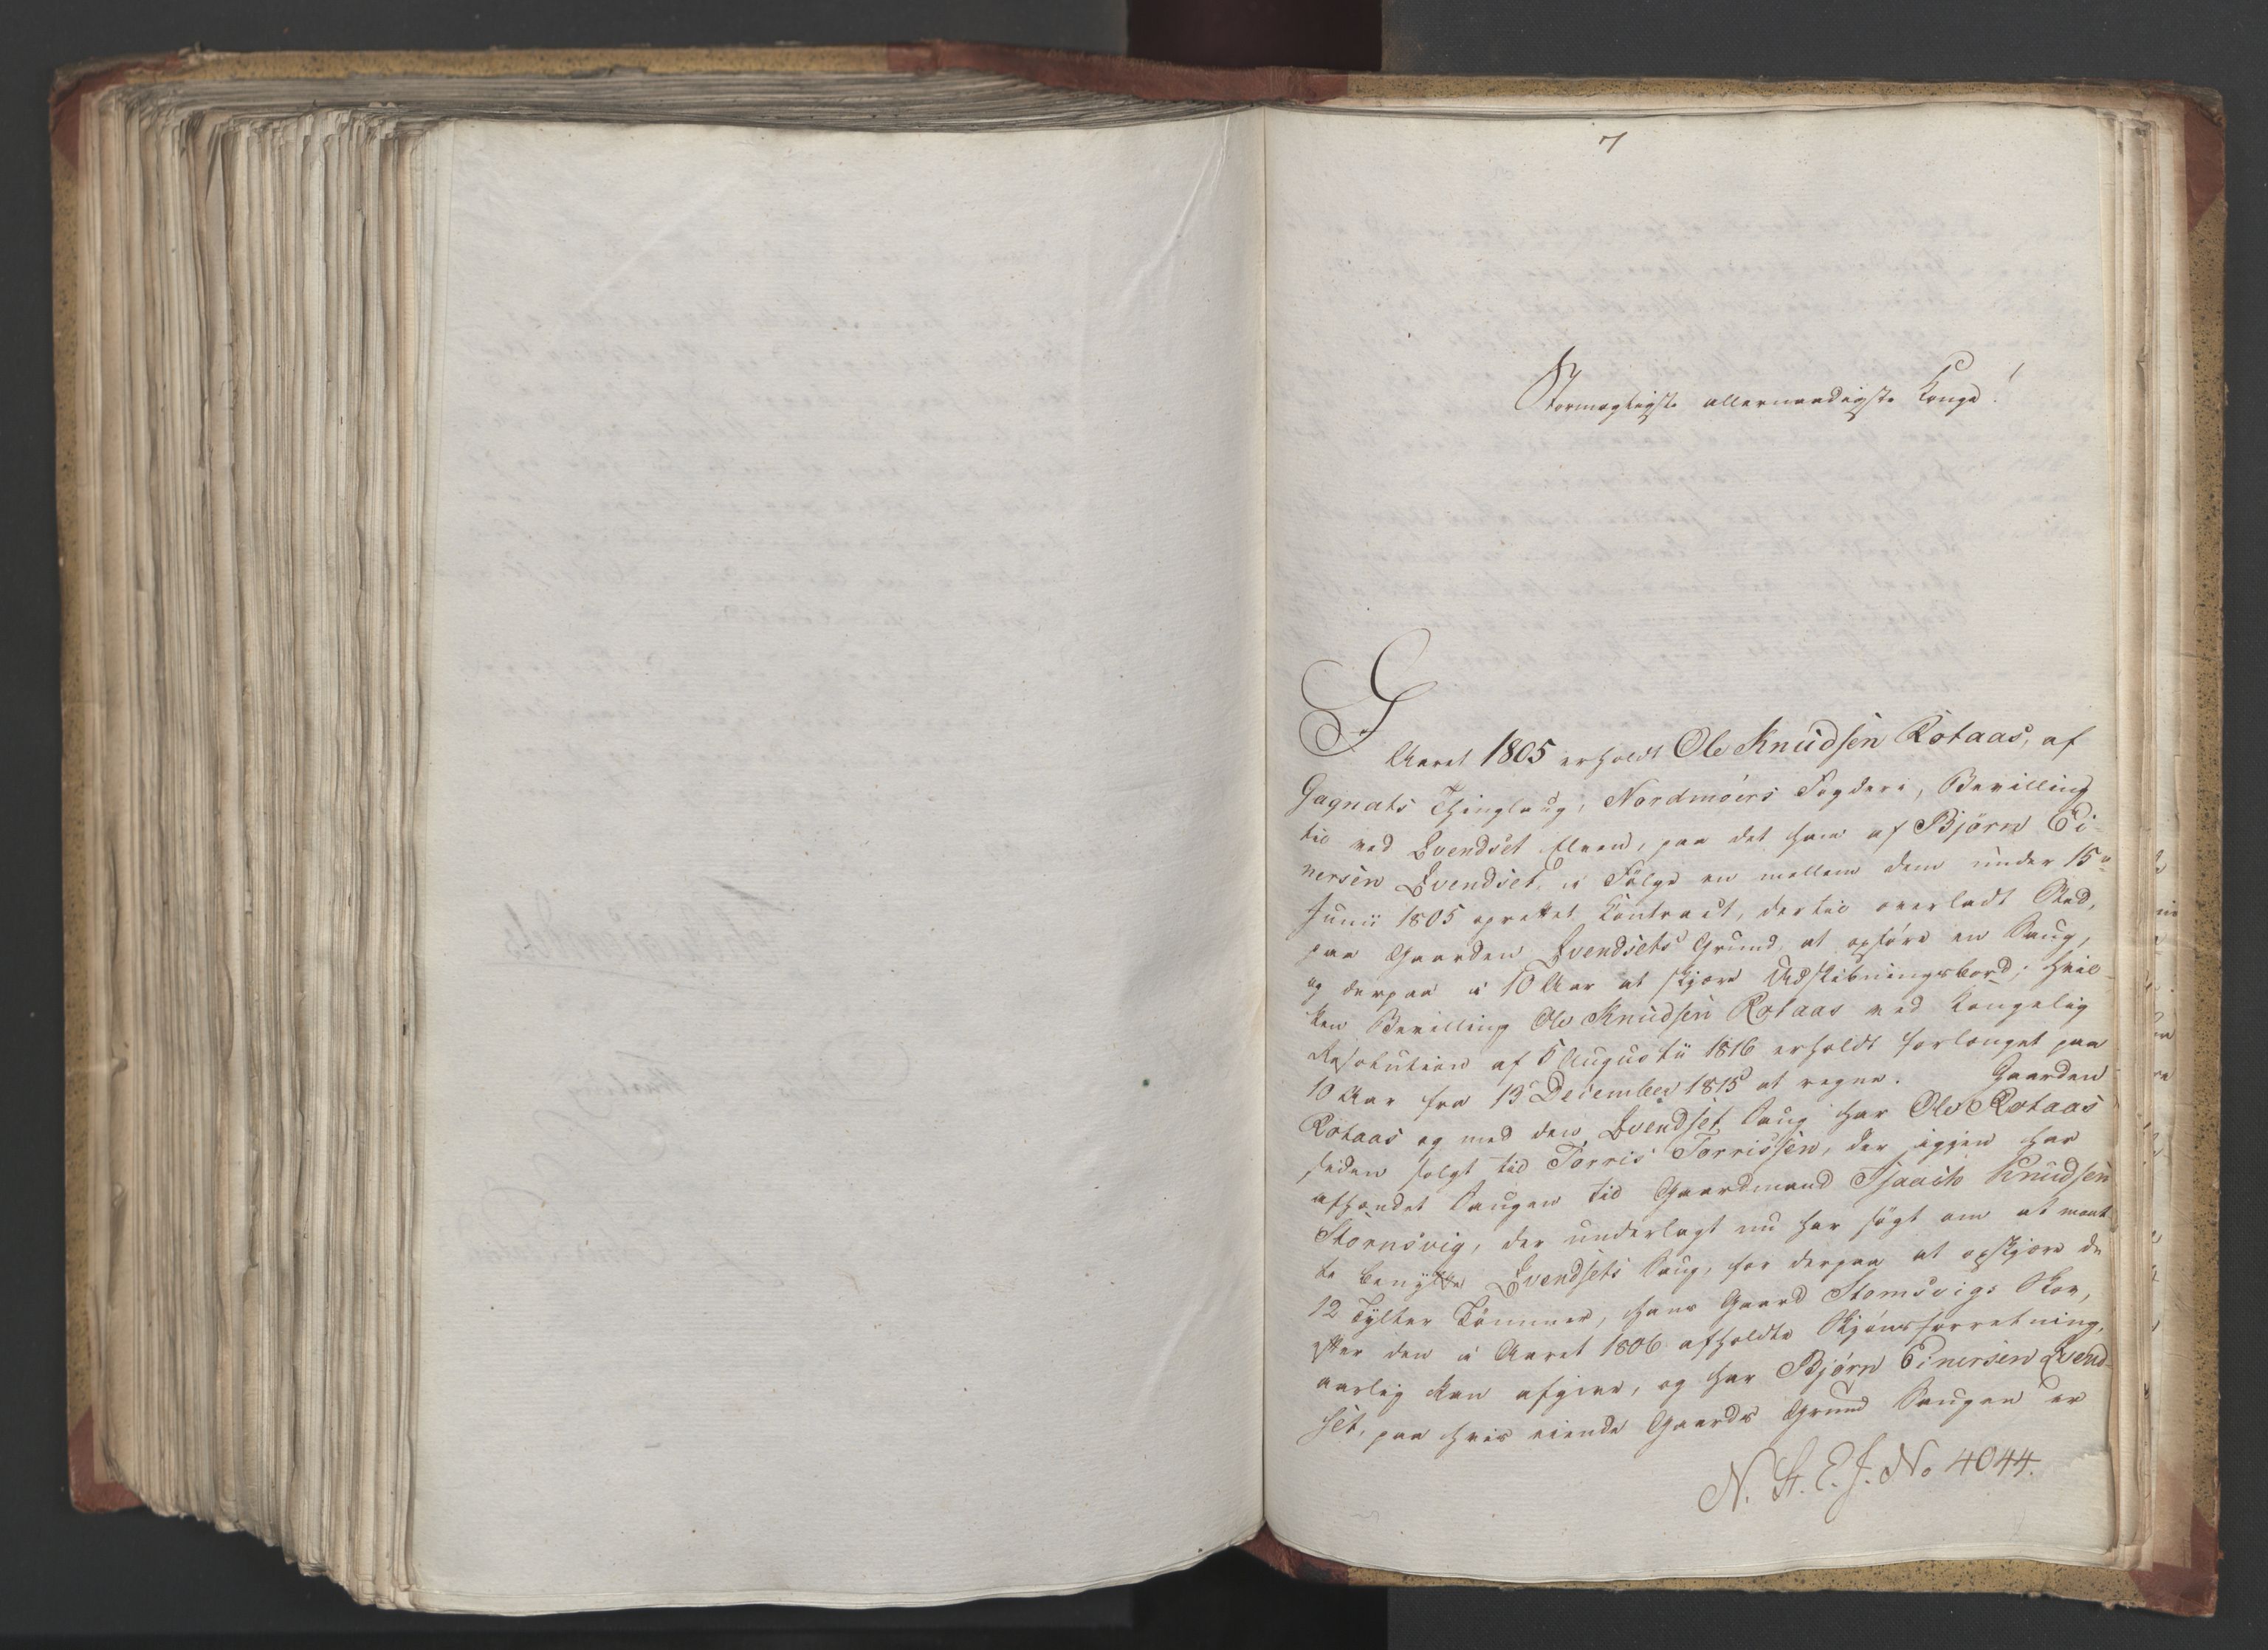 7
Stormægtigste allernaadigste Konge!
I
Aaret 1805 erholdt Ole Knudsen Rotaas, af
Gagnats Thinglaug, Nordmöers Fogderi, Bevilling
til ved Svendset Elven, paa det ham af Björn Ei-
nersen Svendset, i Fölge en mellem dem under 15de
Junii 1805 oprettet Contract, dertil overladt Sted,
paa Gaarden Svendsets Grund, at opföre en Saug,
og derpaa i 10 Aar at skjære Udskibningsbord; hvil-
ken Bevilling Ole Knudsen Rotaas ved Kongelig
Resolution af 5 Augustii 1816 erholdt forlænget paa
10 Aar fra 13 December 1815 at regne. Gaarden
Rotaas og med den, Svendset Saug har Ole Rotaas
siden solgt til Torris Torrissen, der igjen har
afhændet Saugen til Gaardmand Isaach Knudsen
Stornsvig, der underlagt nu har sögt om at maat-
te benytte Svendsets Saug, for derpaa at opskjære de
12 Tylter Tömmer, hans Gaard Stomsvigs Skov,
efter den i Aaret 1806 afholdte Skjönsforretning,
aarlig kan afgive, og har Björn Einersen Svend-
set, paa hvis eiende Gaards Grund Saugen er
N. St. E. J. No 4044.